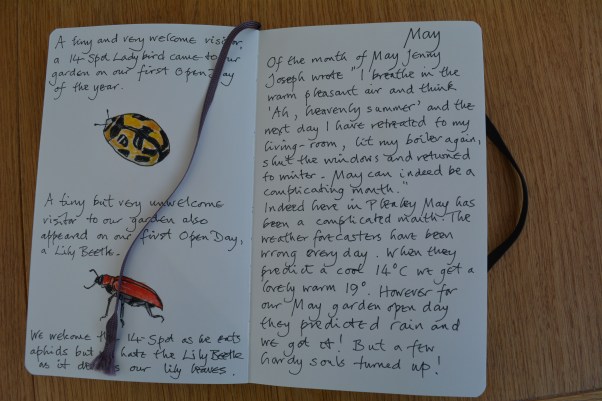 A tiny and very welcome visitor,
a 14-Spot Ladybird came to our
garden on our first Open Day
of the year.
A tiny but very unwelcome
visitor to our garden also
appeared on our first Open Day,
a Lily Beetle.
We welcome the 14-Spot as he eats
aphids but hate the Lily Beetle
as it our lily leaves.
May
Of the month of May Jenny
Joseph wrote "I breathe in the
warm pleasant air and think
'Ah, heavenly summer' and the
next day I have retreated to my
living-room, lit my boiler again,
shut the windows and returned
to winter. May can indeed be a
complicating month."
Indeed here in Pleasley May has
been a complicated month. The
weather forecasters have been
wrong every day. When they
predict a cool 14°C we get a
lovely warm 19°. However for
our May garden open day
they predicted rain and
we got it! But a few
hardy souls turned up!